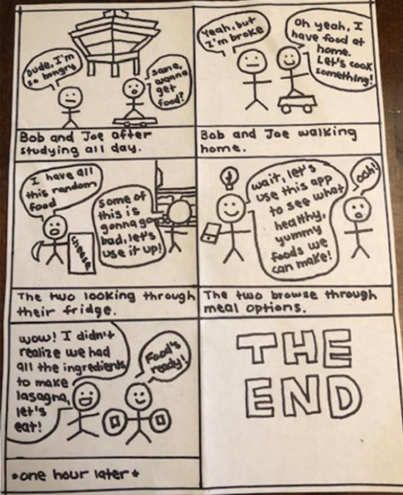 Dude, I'm
so hungry
Same,
wanna
get
food?
Bob and Joe after
studying all day.
Yeah, but
I'm broke
Oh yeah, I
have food at
home.
Let's cook
something!
Bob and Joe walking
home.
I have all
this random
food
cheese
some of
this is
gonna go
bad, let's
use it up!
The two looking through
their fridge.
wait, let's
use this app
to see what
healthy,
yummy
foods we
can make!
ooh!
The two browse through
meal options.
wow! I didn't
realize we had
all the ingredients
to make
lasagna,
let's
eat!
Food's
ready!
*one hour later*
THE
END